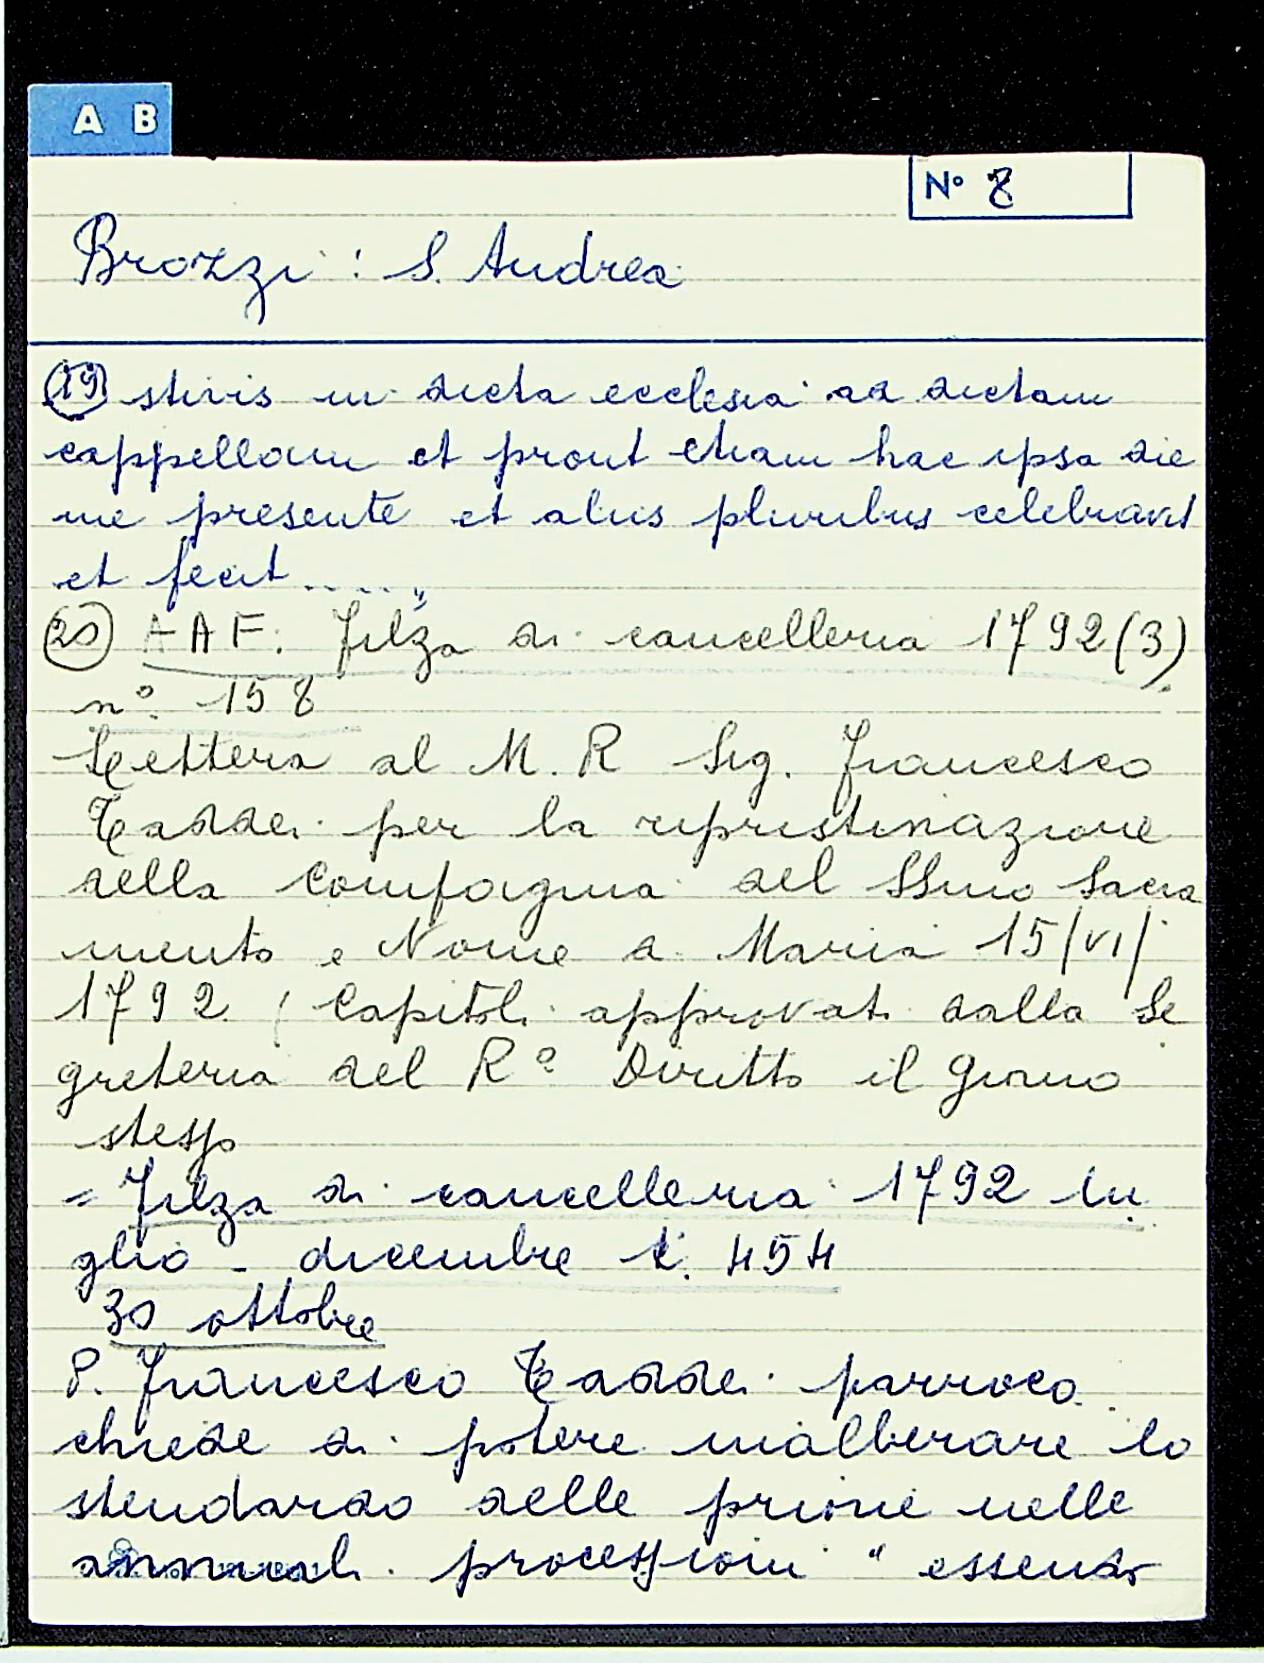 A B
N° 8
Brozzi : S. Andrea
19 stivis in dicta ecclesia ad dictam
cappellam et prout etiam hac ipsa die
me presente et aliis pluribus celebravit
et fecit ....."
20 A A F. Filza di cancelleria 1792 (3)
n°. 158
Lettera al M. R Sig. Francesco
Taddei per la ripristinazione
della Compagnia del SSmo Sacra
mento e Nome d. Maria 15/VI/
1792 ( Capitoli approvati dalla Se
greteria del R° Diritto il giorno
stesso
= Filza di cancelleria 1792 lu
glio - dicembre t. 454
30 ottobre
P. Francesco Taddei parroco
chiede di potere inalberare lo
stendardo delle prione nelle
annuali processioni " essendo